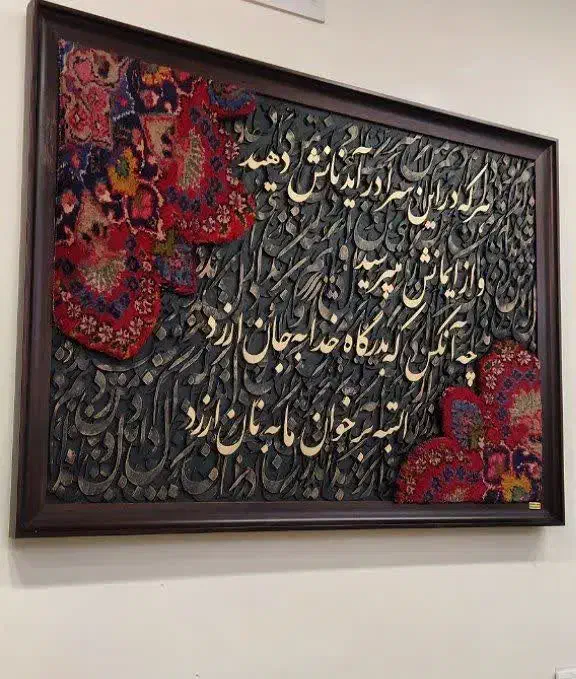 هرکه در این سرا درآید نانش دهید
و از ایمانش مپرسید
چه آنکس که بدرگاه خدا به جان ارزد
البته بر خوان ما به نان ارزد